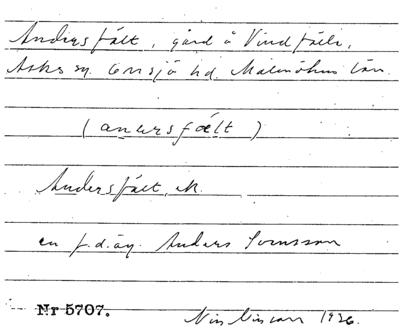 Andersfält, gård å Vindfälle,
Asks sn. Onsjö hd. Malmöhus län.
(anersfælt)
Andersfält, ek.
en f.d. äg. Anders Svensson
Nr 5707. Nils Nilsson 1926.